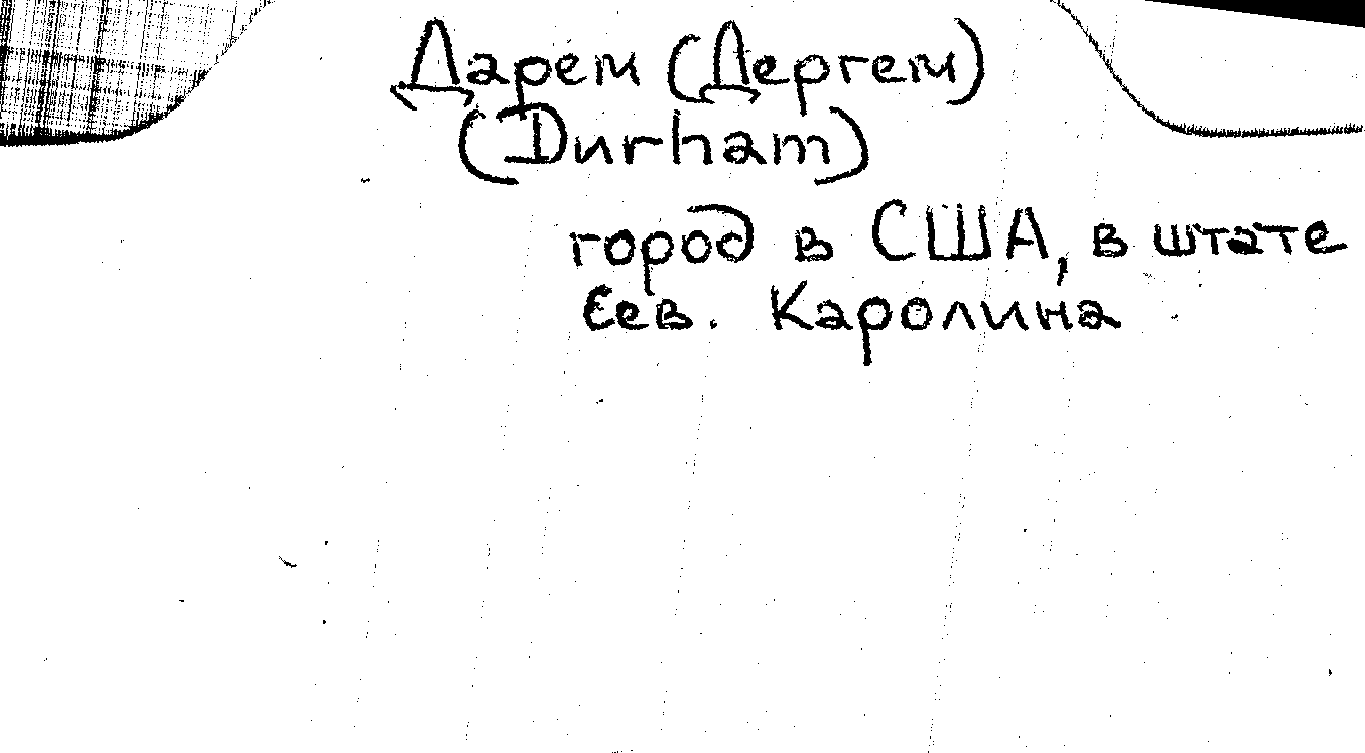 Дарем (Дергем)
(Durham)
город в США, в штате
Сев. Каролина